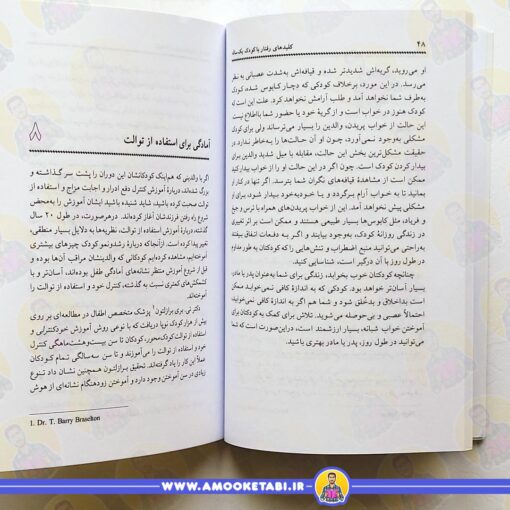 ۴۸
کلیدهای رفتار با کودک یک‌ساله
او می‌روید، گریه‌اش شدیدتر شده و قیافه‌اش به‌شدت عصبانی به نظر
می‌رسد. در این مورد، برخلاف کودکی که دچار کابوس شده، کودک
به‌طرف شما نخواهد آمد و طلب آرامش نخواهد کرد. علت این است که
کودک هنوز در خواب است و از گریهٔ خود یا حضور شما بااطلاع نیست.
این حالت از خواب پریدن، والدین را بسیار می‌ترساند ولی برای کودک
مشکلی به‌وجود نمی‌آورد، چون او آن حالت‌ها را به‌خاطر ندارد. در
حقیقت مشکل‌ترین بخش این حالت، مقابله با میل شدید والدین برای
بیدار کردن کودک است. چون اگر در این حالت او را از خواب بیدار کنید
ممکن است از مشاهدهٔ قیافه‌های نگران شما بترسد. اگر تنها در کنار او
بمانید تا به خواب آرام برگردد و یا خودبه‌خود بیدار شود، برای او
مشکلی پیش نخواهد آمد. این حالت از خواب پریدن‌های همراه با ترس و جیغ
و فریاد، مثل کابوس‌ها بسیار طبیعی هستند و ممکن است بر اثر تغییری
در زندگی روزانهٔ کودک، به‌وجود بیایند و اگر به دفعات اتفاق بیفتند
به‌راحتی می‌توانید منبع اضطراب و تنش‌هایی را که کودکتان به طور مداوم
در طول روز با آن درگیر است، شناسایی کنید.
چنانچه کودکتان خوب بخوابد، زندگی برای شما به‌عنوان پدر یا مادر،
بسیار آسان‌تر خواهد بود. کودکی که به اندازهٔ کافی نمی‌خوابد ممکن
است بداخلاق و بدخُلق شود و شما هم اگر به اندازهٔ کافی نمی‌خوابید،
احتمالاً عصبی و بی‌حوصله می‌شوید. تلاش برای کمک به کودکتان برای
آموختن خواب شبانه، بسیار ارزشمند است، در این‌صورت است که شما
می‌توانید در طول روز، پدر یا مادر بهتری باشید.
۸
آمادگی برای استفاده از توالت
اگر با والدینی که هم‌اینک کودکانشان این دوران را پشت سر گذاشته و
بزرگ شده‌اند، دربارهٔ آموزش کنترل دفع ادرار و اجابت مزاج و استفاده از
توالت صحبت کرده باشید، شاید شنیده باشید ایشان آموزش را به‌محض
شروع راه رفتن فرزندشان آغاز کرده‌اند. درهرصورت، در طول ۲۰ سال
گذشته، دربارهٔ آموزش استفاده از توالت، نظریه‌ها به دلایل بسیار منطقی،
تغییر پیدا کرده است. ازآنجاکه دربارهٔ رشد و نمو کودک چیزهای بیشتری
می‌دانیم، مشاهده کرده‌ایم کودکانی که والدینشان مراقب آن‌ها بوده و
قبل از شروع آموزش منتظر نشانه‌های آمادگی طفل بوده‌اند، آسان‌تر و با
کشمکش‌های کمتری نسبت به گذشته، کنترل خود و استفاده از توالت را
آموخته‌اند.
دکتر تی. بری برازلتون۱ پزشک متخصص اطفال در مطالعه‌ای بر روی
بیش از هزار کودک نوپا دریافت که با نوعی روش آموزش خودکنترلی و
استفاده از توالت کودک‌محور، کودکان تا سن بیست‌وهشت‌ماهگی کنترل
خود و استفاده از توالت را می‌آموزند و تا سن سه‌سالگی تمام کودکان
عملاً این کار را یاد گرفته‌اند. تحقیق برازلتون همچنین نشان داد تنوع
زیادی در سن آموختن وجود دارد و آموختن زودهنگام نشانه‌ای از هوش
1. Dr. T. Barry Braselton
WWW.AMOOKETABI.IR